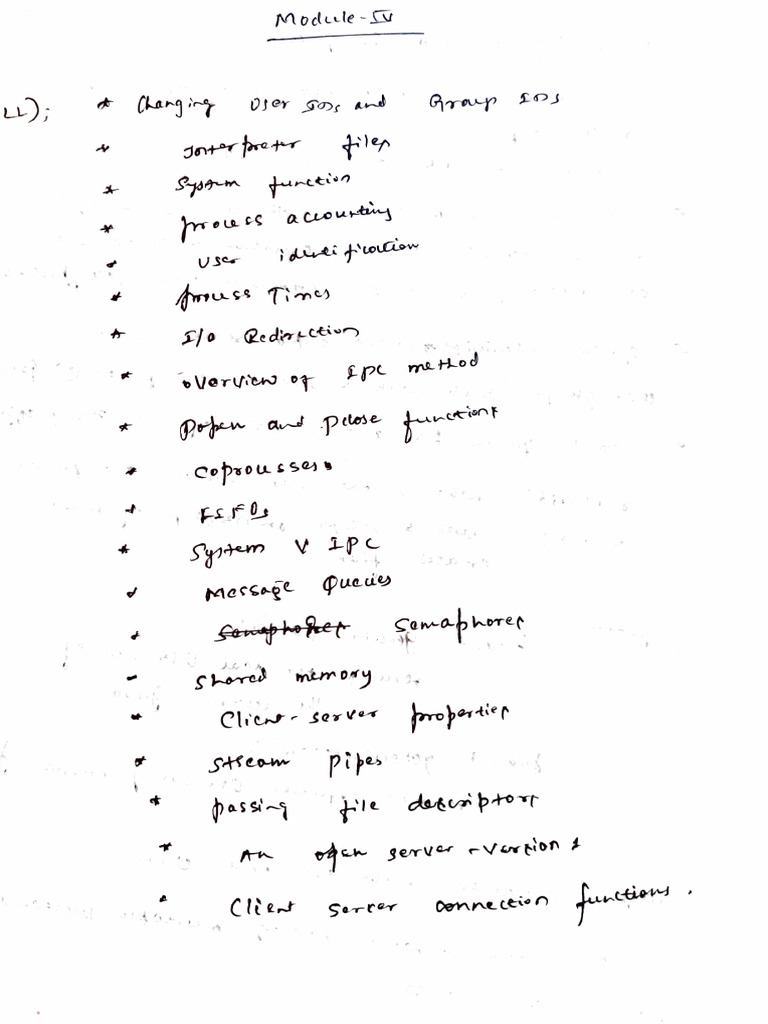 Module-IV
LL);
* Changing User IDs and Group IDs
* Interpreter files
* System function
* process accounting
* User identification
* process Times
* I/O Redirection
* overview of IPC method
* Popen and Pclose functions
* coprocesses
* FIFOs
* System V IPC
* Message Queues
* Semaphores Semaphores
- Shared memory
* Client-server properties
* Stream pipes
* passing file descriptors
* An open server-version 1
* Client server connection functions.